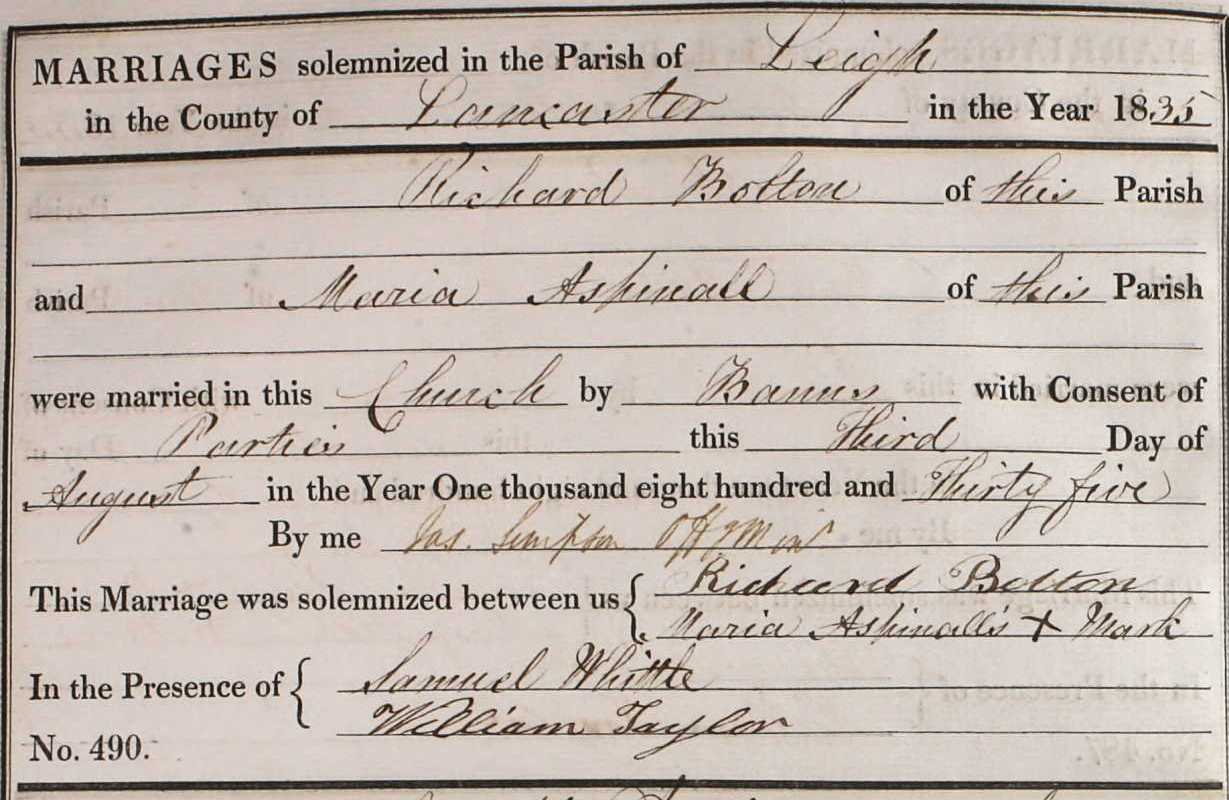 MARRIAGES solemnized in the Parish of Leigh
in the County of Lancaster in the Year 1835
Richard Bolton of this Parish
and Maria Aspinall of this Parish
were married in this Church by Banns with Consent of
Parties this Third Day of
August in the Year One thousand eight hundred and Thirty five
By me Jas. Simpson Offg Min
This Marriage was solemnized between us { Richard Bolton
Maria Aspinall's + Mark
In the Presence of { Samuel Whittle
William Taylor
No. 490.